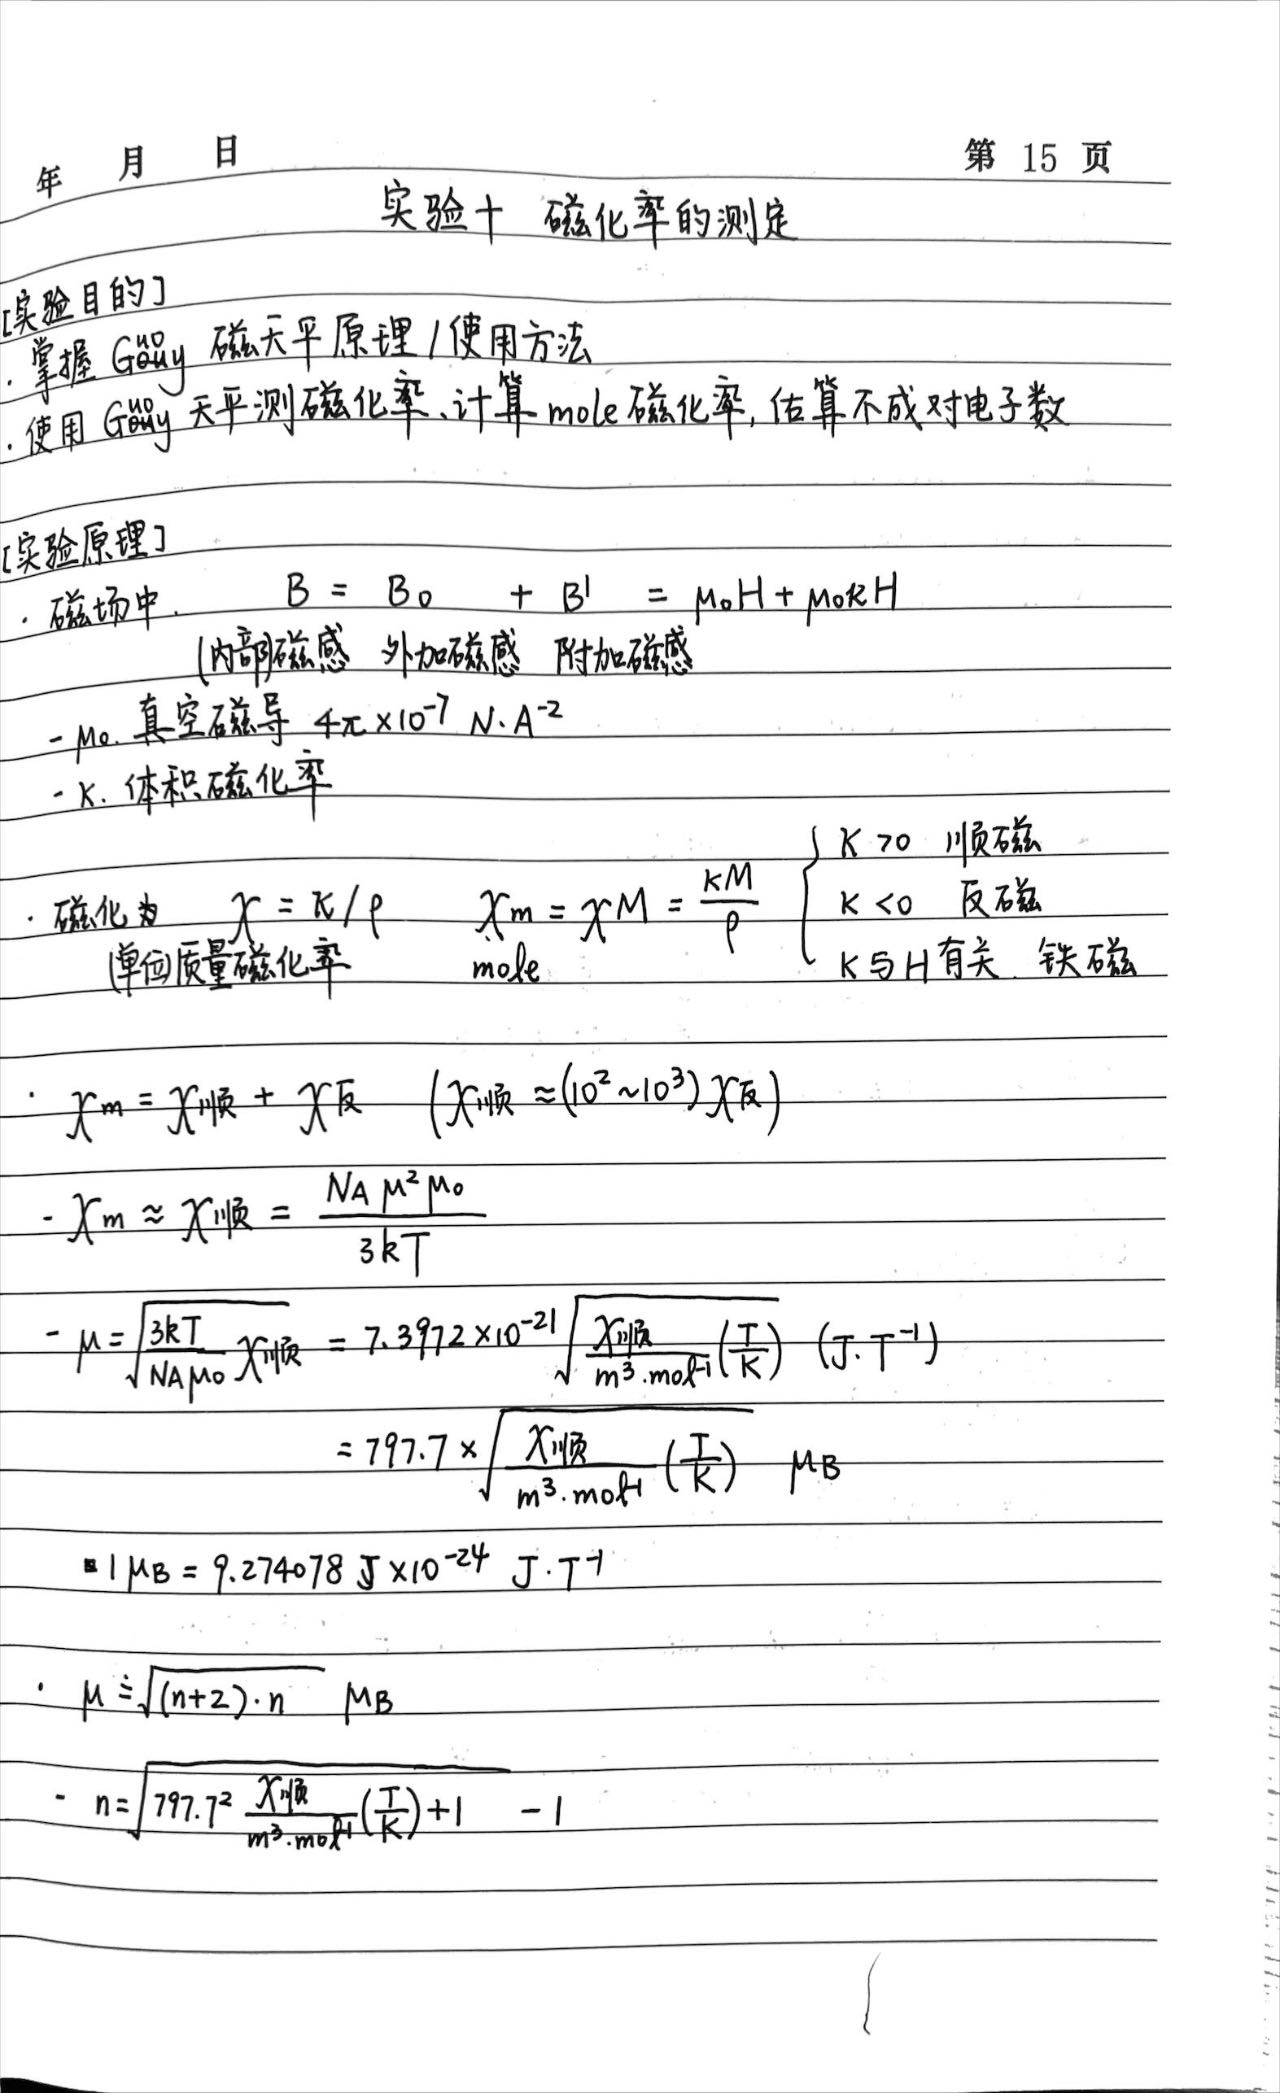 年 月 日 第 15 页
实验十 磁化率的测定
[实验目的]
· 掌握 Gouy 磁天平原理/使用方法
· 使用 Gouy 天平测磁化率、计算 mole 磁化率, 估算不成对电子数
[实验原理]
· 磁场中. B = B₀ + B' = μ₀H + μ₀κH
(内部)磁感 外加磁感 附加磁感
- μ₀. 真空磁导 4π×10⁻⁷ N·A⁻²
- κ. 体积磁化率
· 磁化为 χ = κ/ρ χm = χM = κM/ρ { κ>0 顺磁
κ<0 反磁
(单位)质量磁化率 mole κ与H有关. 铁磁
· χm = χ顺 + χ反 (χ顺 ≈ (10²~10³) χ反)
- χm ≈ χ顺 = NA μ² μ₀ / 3kT
- μ = √(3kT/NAμ₀ χ顺) = 7.3972×10⁻²¹ √(χ顺/m³·mol⁻¹ (T/K)) (J·T⁻¹)
= 797.7 × √(χ顺/m³·mol⁻¹ (T/K)) μB
▪ 1 μB = 9.274078 ×10⁻²⁴ J·T⁻¹
· μ ≐ √((n+2)·n) μB
- n = √(797.7² χ顺/m³·mol⁻¹ (T/K) + 1) - 1